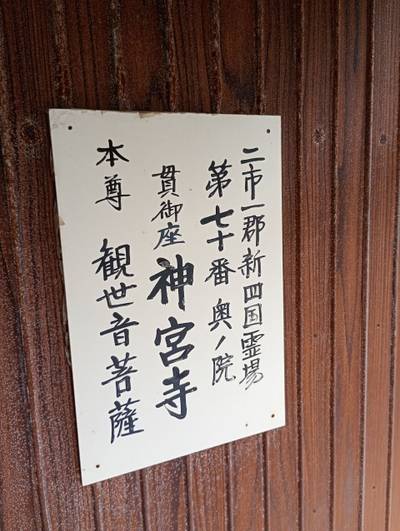 二市一郡新四国霊場
第七十番奥ノ院
貫御座 神宮寺
本尊 観世音菩薩